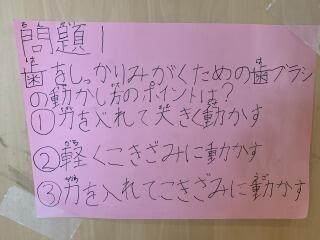 問題1
歯をしっかりみがくための歯ブラシ
の動かし方のポイントは？
①力を入れて大きく動かす
②軽くこきざみに動かす
③力を入れてこきざみに動かす